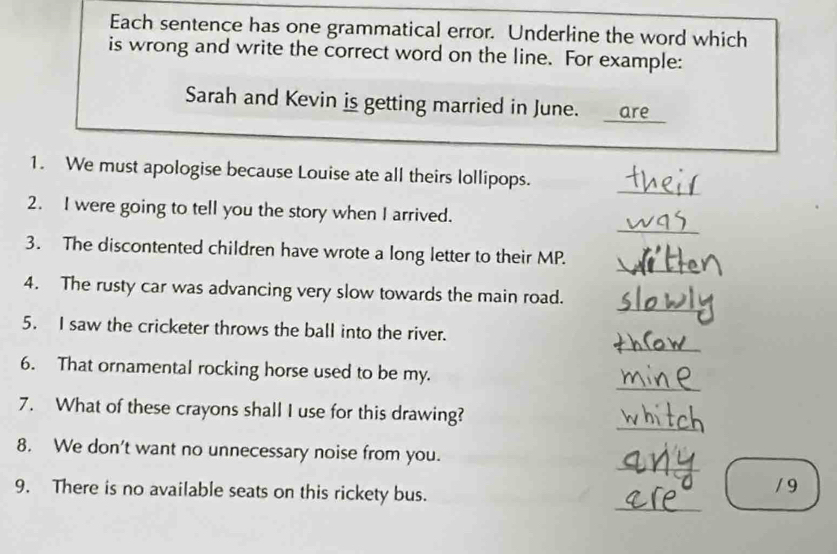 Each sentence has one grammatical error. Underline the word which
is wrong and write the correct word on the line. For example:
Sarah and Kevin is getting married in June. are
1. We must apologise because Louise ate all theirs lollipops. their
2. I were going to tell you the story when I arrived. was
3. The discontented children have wrote a long letter to their MP. written
4. The rusty car was advancing very slow towards the main road. slowly
5. I saw the cricketer throws the ball into the river. throw
6. That ornamental rocking horse used to be my. mine
7. What of these crayons shall I use for this drawing? whitch
8. We don't want no unnecessary noise from you. any
9. There is no available seats on this rickety bus. are
/9